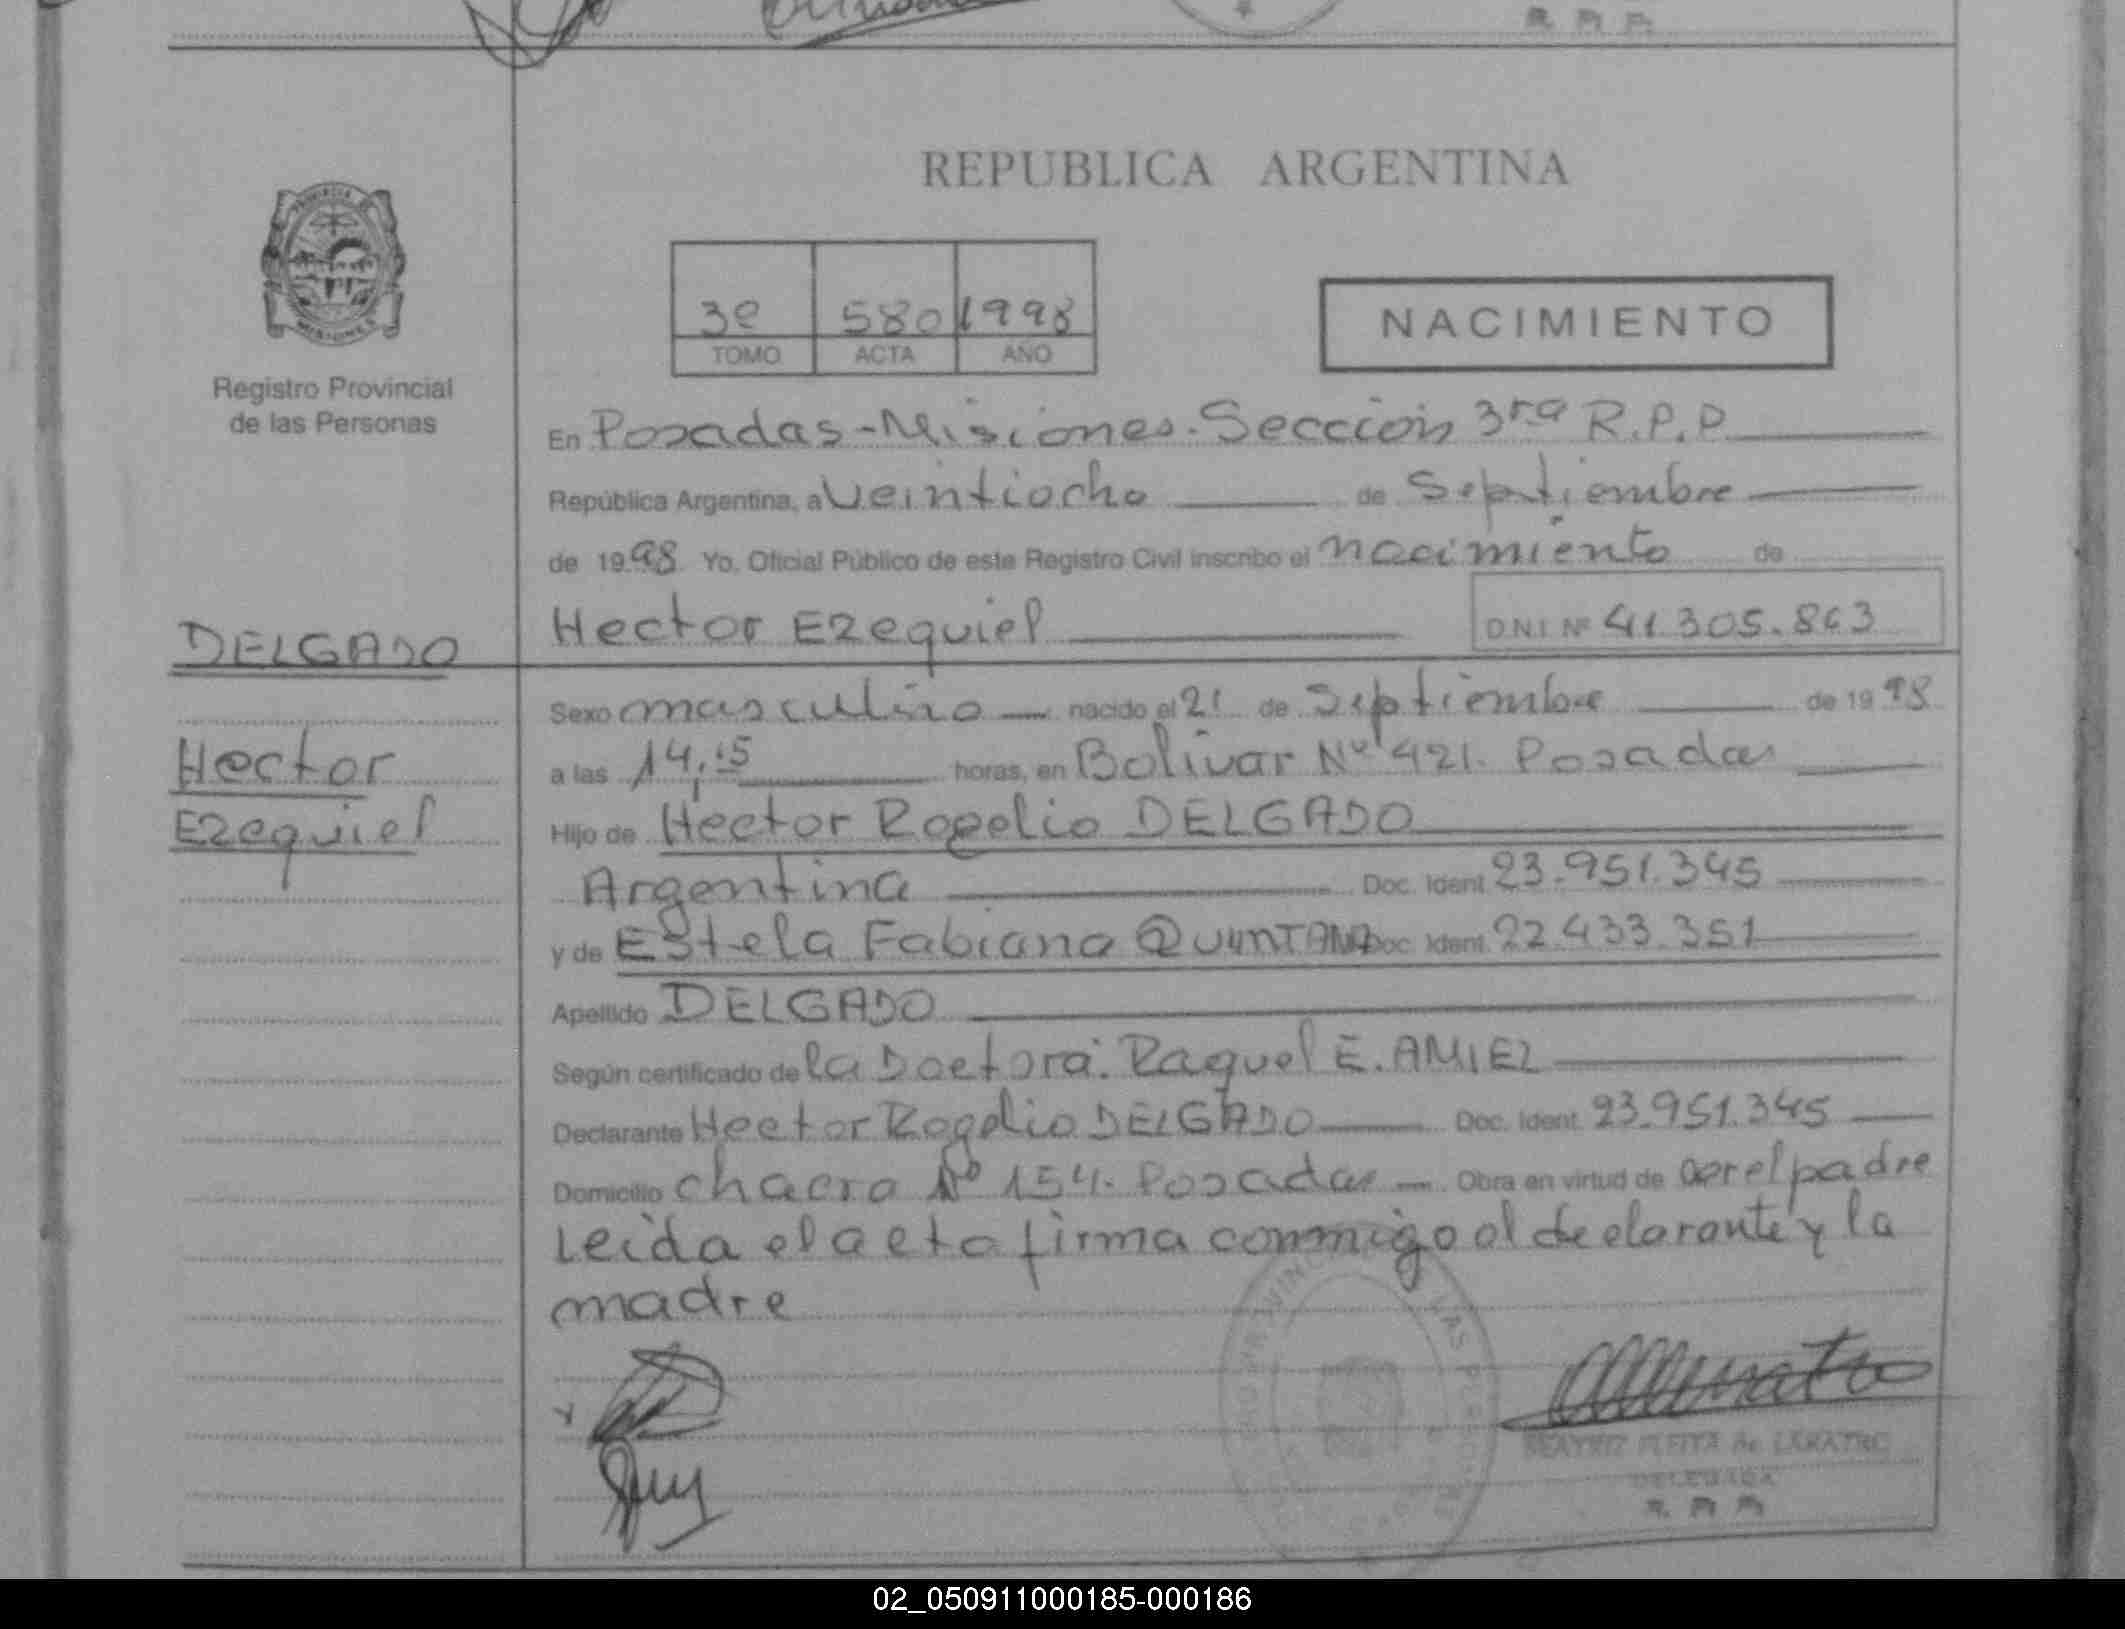 REPUBLICA ARGENTINA
3º 580 1998
TOMO ACTA AÑO
NACIMIENTO
Registro Provincial
de las Personas
En Posadas-Misiones-Sección 3ra R.P.P
República Argentina, a Veintiocho de Septiembre
de 1998 Yo, Oficial Público de este Registro Civil inscribo el nacimiento de
Hector Ezequiel D.N.I. Nº 41.305.863
DELGADO
Sexo masculino nacido el 21 de Septiembre de 1998
Hector
a las 14,15 horas, en Bolivar Nº 421. Posadas
Ezequiel
Hijo de Hector Rogelio DELGADO
Argentina Doc. Ident. 23.951.345
y de Estela Fabiana QUINTANA Doc. Ident. 22.433.351
Apellido DELGADO
Según certificado de la Doctora: Raquel E. AMIEZ
Declarante Hector Rogelio DELGADO Doc. Ident. 23.951.345
Domicilio chacra Nº 154. Posadas Obra en virtud de ser el padre
Leida el acta firma conmigo el declarante y la
madre
DELEGADA
02_050911000185-000186